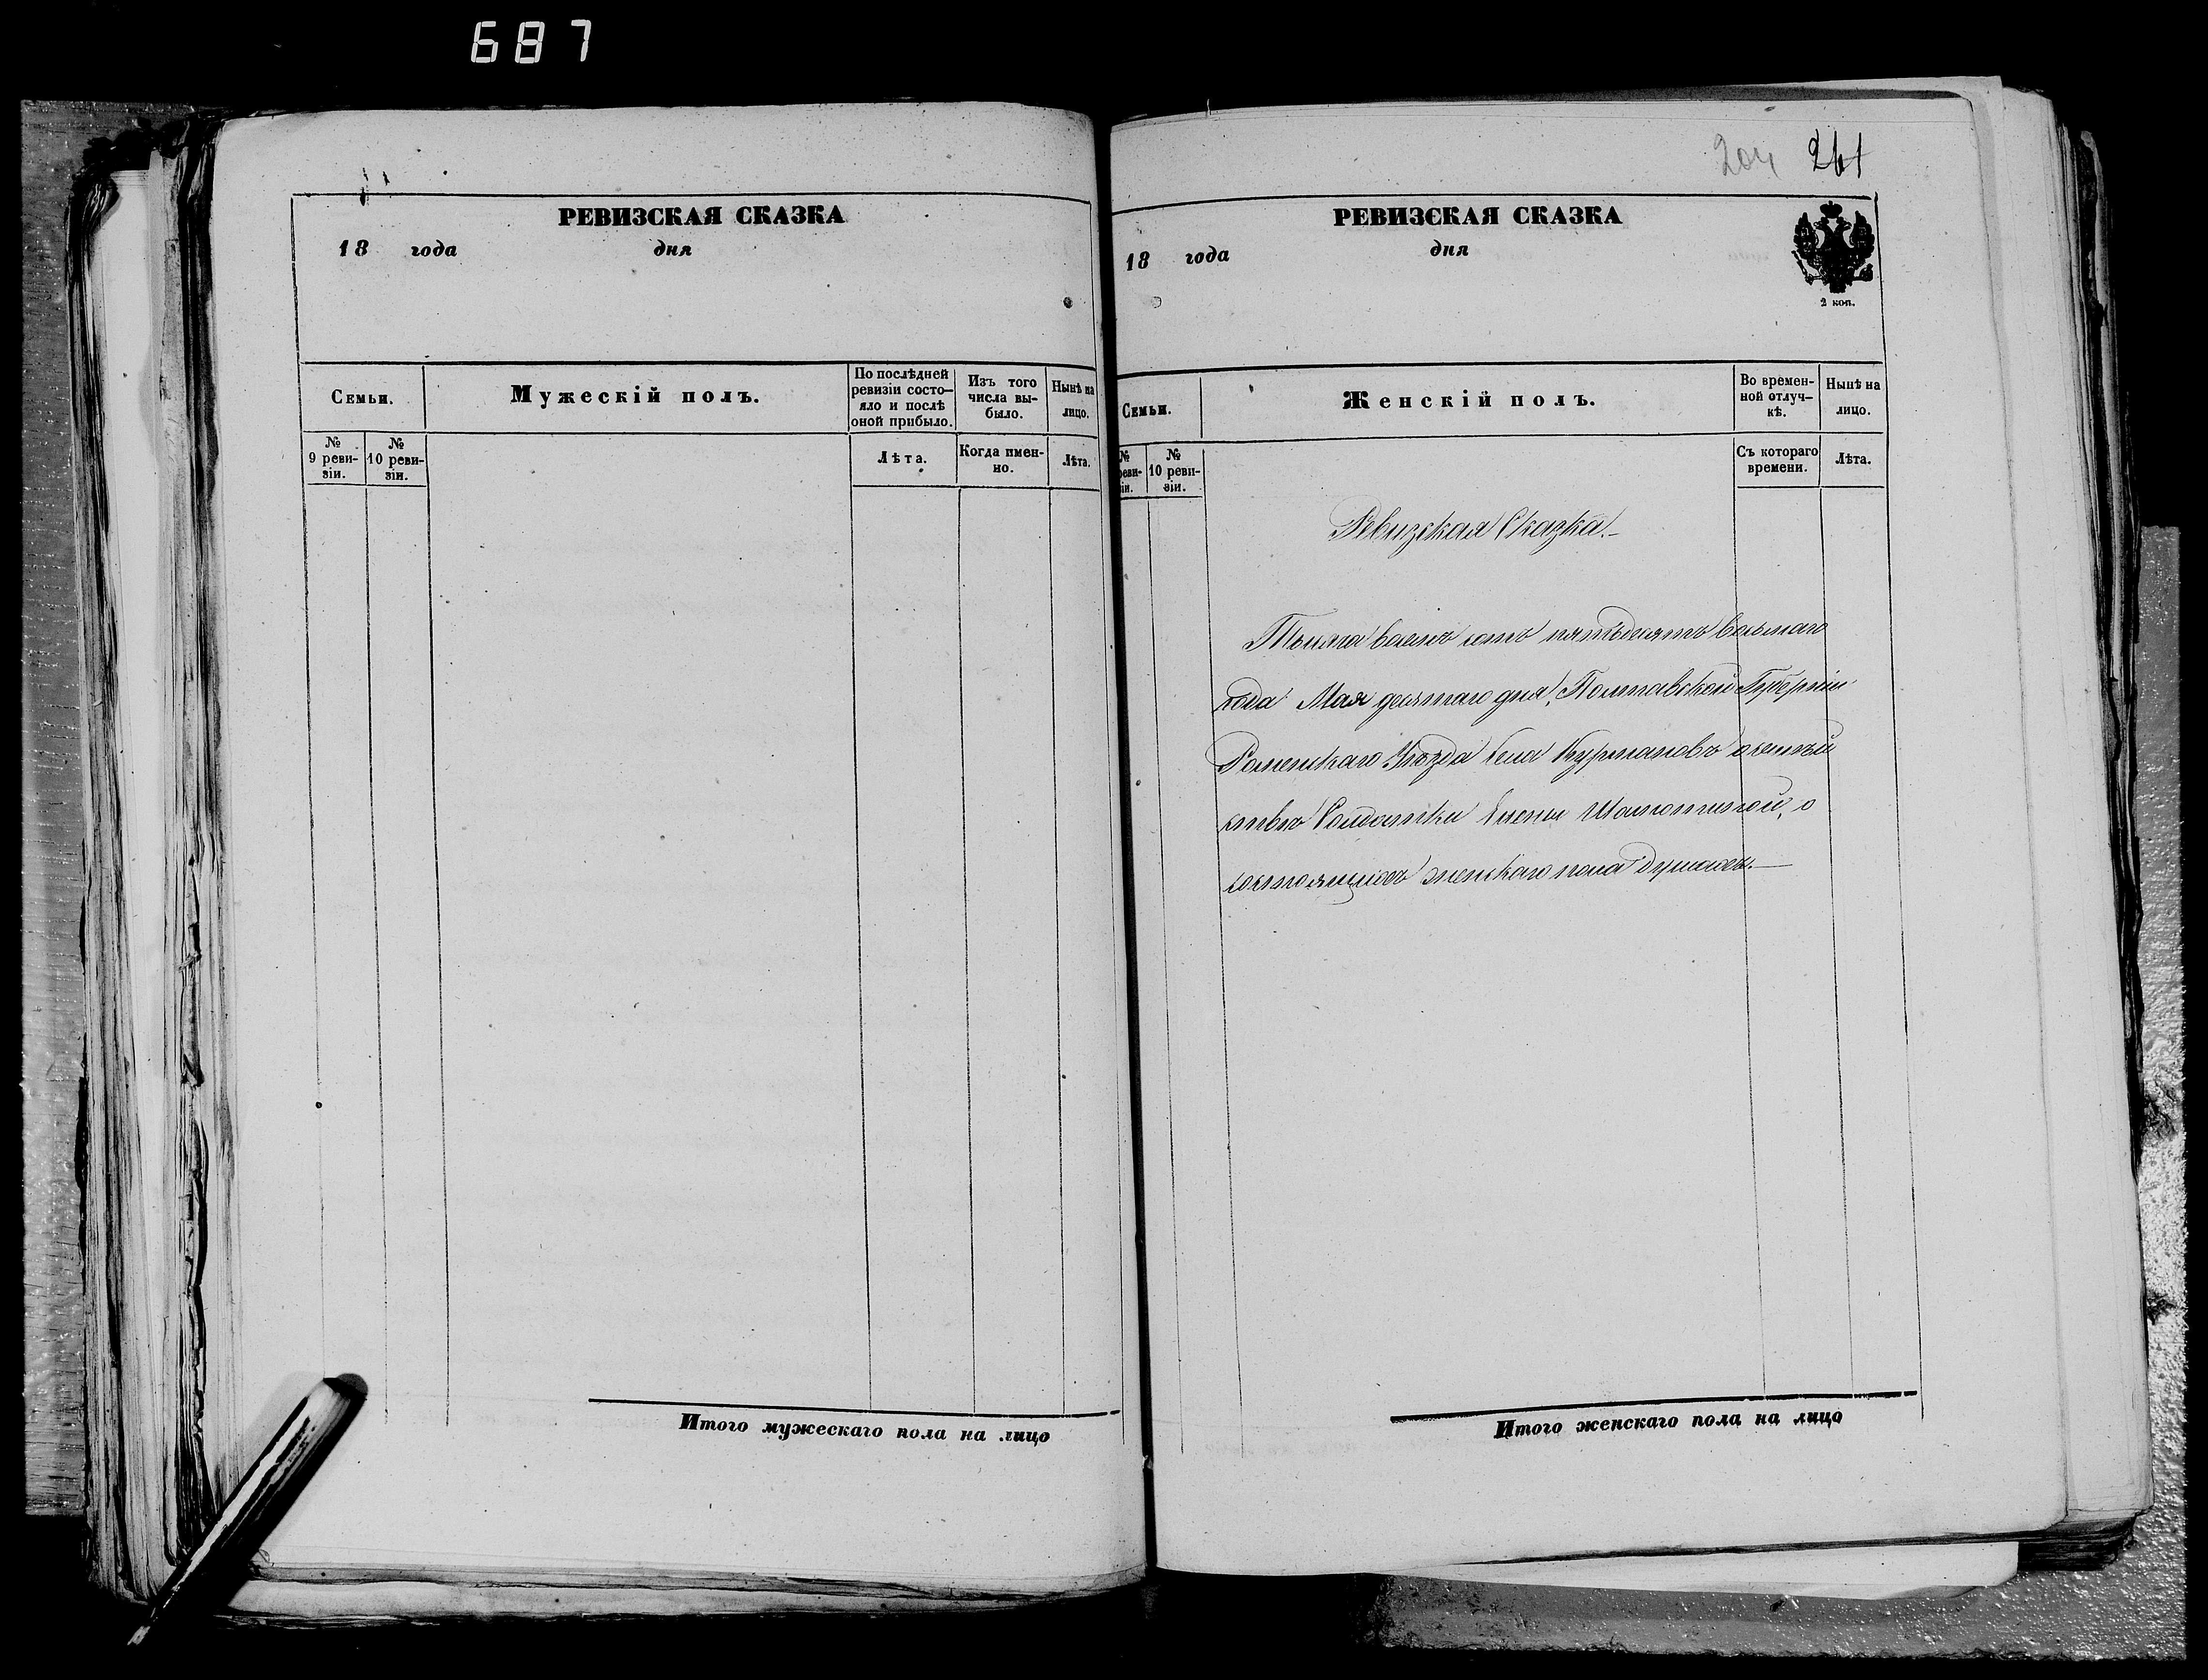 687
РЕВИЗСКАЯ СКАЗКА
18 года дня
Семьи.
Мужескій полъ.
По послѣдней ревизіи состо-
яло и послѣ оной прибыло.
Изъ того числа вы-
было.
Нынѣ на лицо.
№ 9 реви-
зіи.
№ 10 реви-
зіи.
Лѣта.
Когда имен-
но.
Лѣта.
Итого мужескаго пола на лицо
204 261
РЕВИЗСКАЯ СКАЗКА
18 года дня
2 коп.
Семьи.
Женскій полъ.
Во времен-
ной отлуч-
кѣ.
Нынѣ на лицо.
№ реви-
зіи.
№ 10 реви-
зіи.
Съ котораго времени.
Лѣта.
Ревизская Сказка.
Тысяча восемь сотъ пятьдесятъ восьмаго
года Мая десятаго дня, Полтавской Губерніи
Роменскаго Уѣзда села Курмановъ о семей
ствѣ Солдатки Елены, о
состоящихъ женскаго пола душахъ.
Итого женскаго пола на лицо